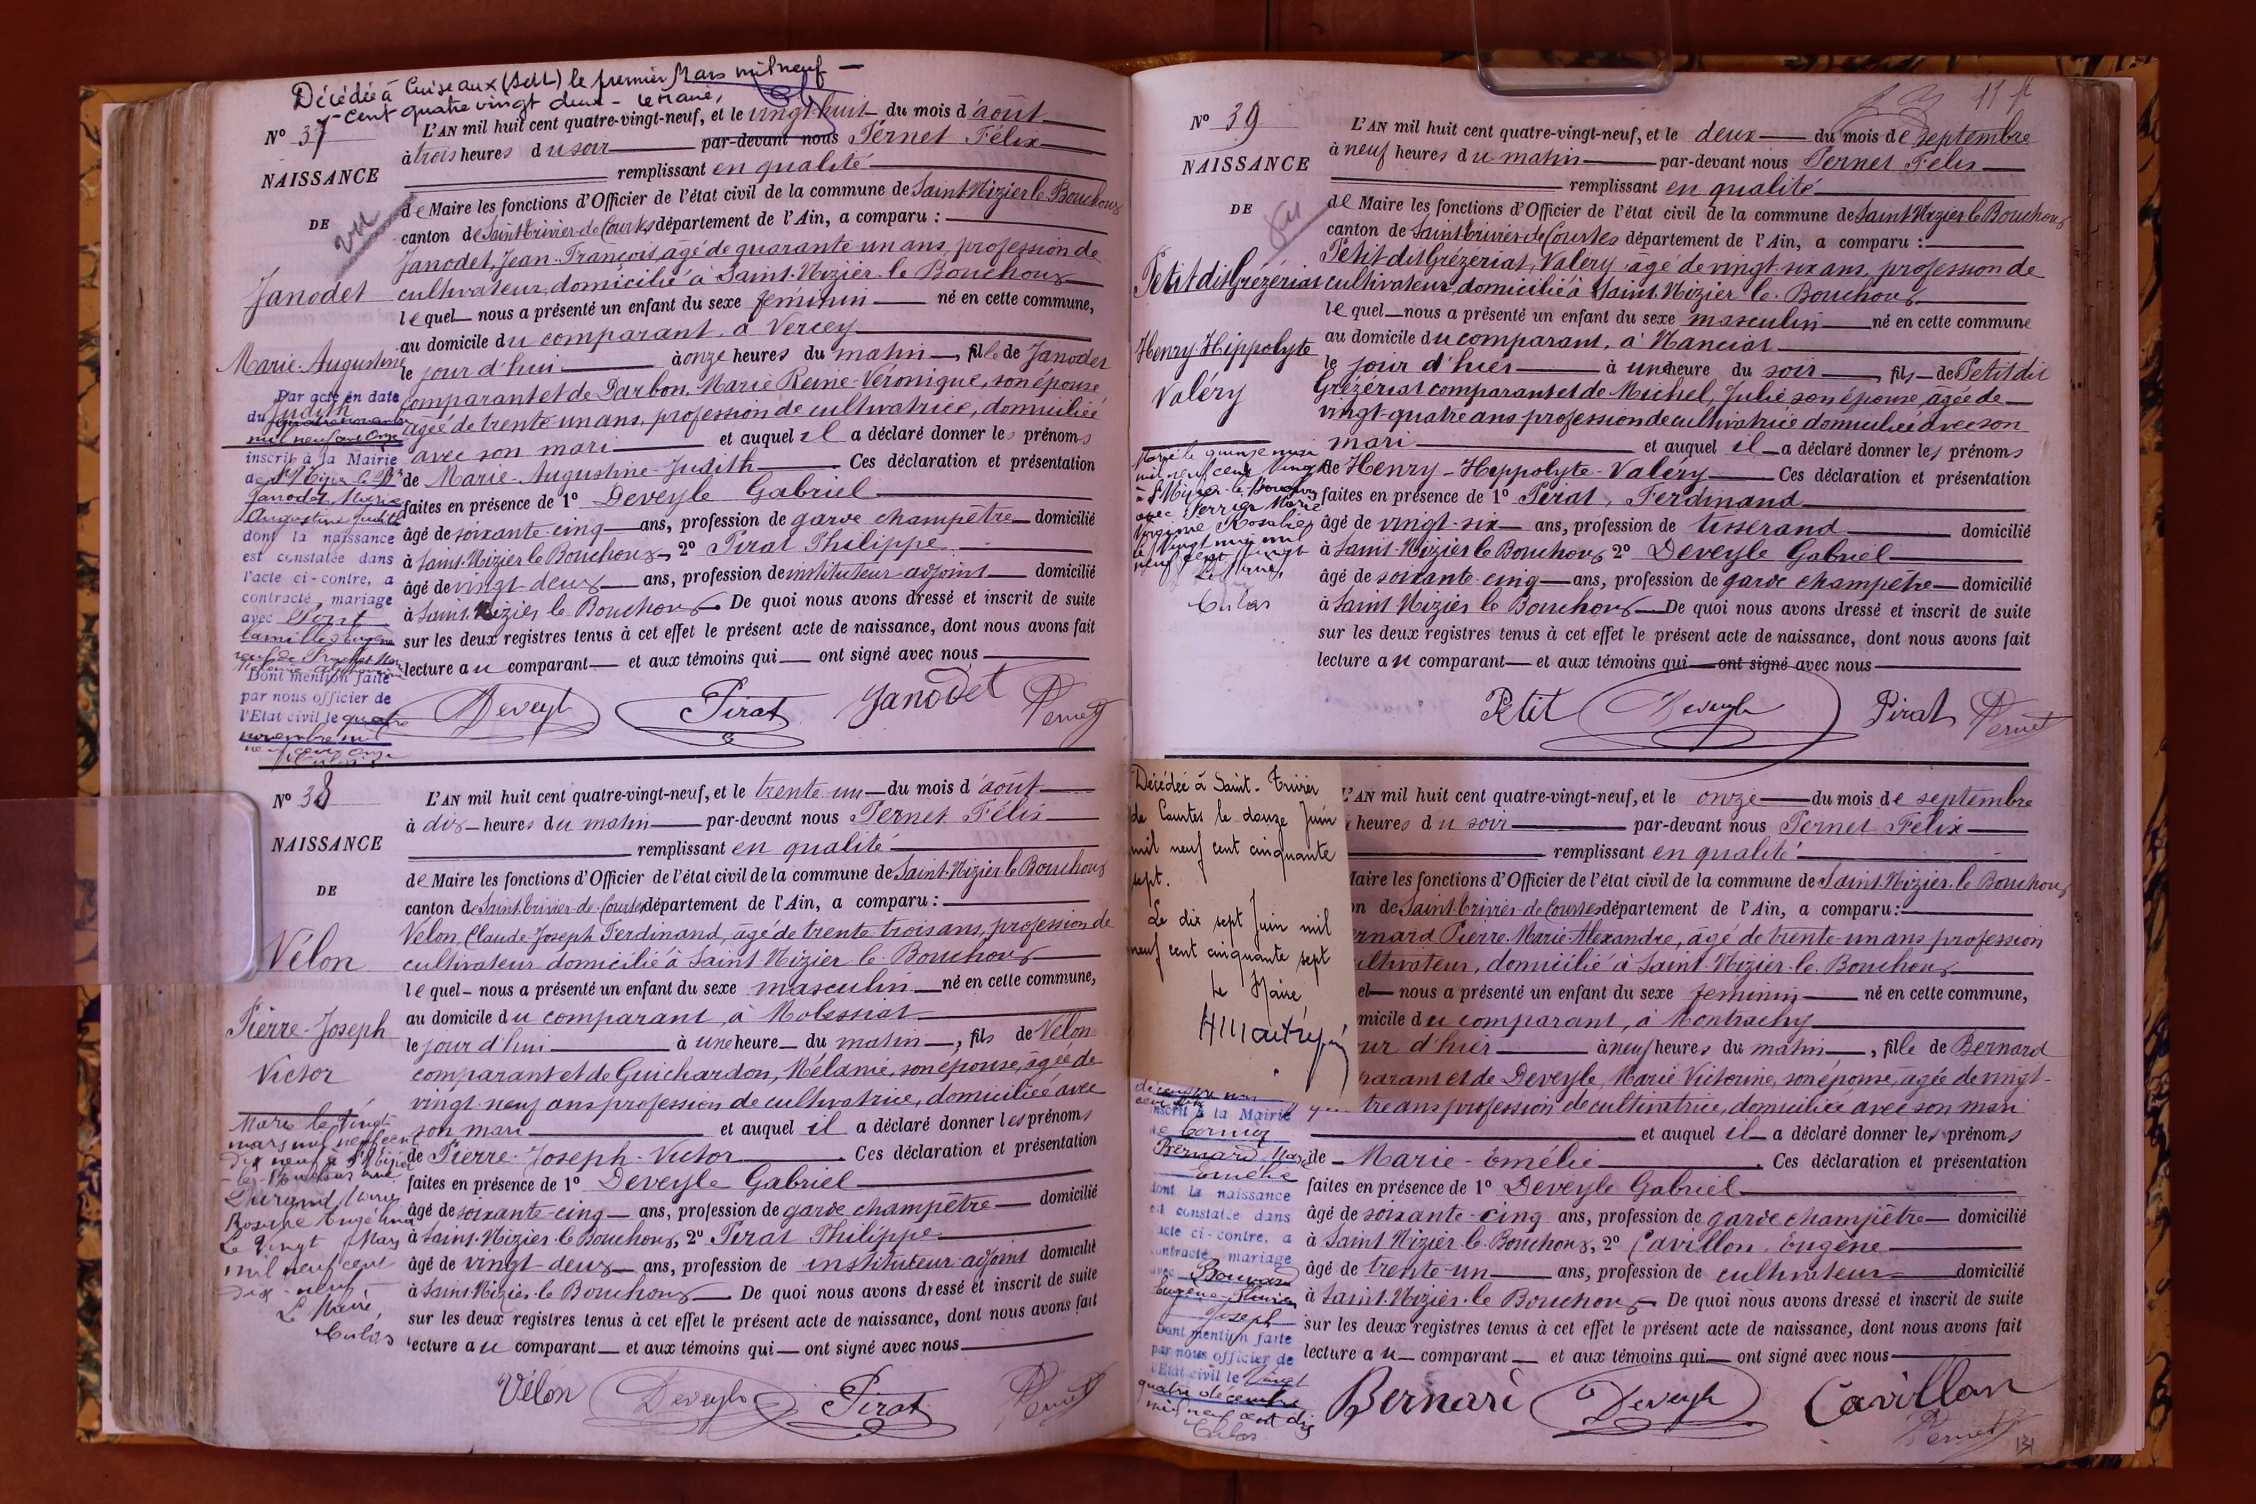 Décédée à Cuiseaux (S et L) le premier Mars mil neuf
cent quatre vingt deux - Le Maire,
N° 37
NAISSANCE
DE
vu
Janodet
Marie-Augustine
Judith
L'AN mil huit cent quatre-vingt-neuf, et le vingt-huit du mois d'août
à trois heures du soir par-devant nous Pernet Félix
remplissant en qualité
de Maire les fonctions d'Officier de l'état civil de la commune de Saint-Nizier le Bouchoux
canton de Saint-Trivier-de-Courtes département de l'Ain, a comparu :
Janodet, Jean-François, âgé de quarante-un ans, profession de
cultivateur, domicilié à Saint-Nizier-le-Bouchoux
lequel nous a présenté un enfant du sexe féminin né en cette commune,
au domicile du comparant, à Vercey
le jour d'hui à onze heures du matin, fille de Janodet
comparant et de Darbon, Marie Reine-Véronique, son épouse
âgée de trente-un ans, profession de cultivatrice, domiciliée
avec son mari et auquel il a déclaré donner les prénoms
de Marie-Augustine-Judith Ces déclaration et présentation
faites en présence de 1° Deveyle Gabriel
âgé de soixante-cinq ans, profession de garde champêtre domicilié
à Saint-Nizier le Bouchoux, 2° Pirat Philippe
âgé de vingt-deux ans, profession de instituteur-adjoint domicilié
à Saint-Nizier le Bouchoux. De quoi nous avons dressé et inscrit de suite
sur les deux registres tenus à cet effet le présent acte de naissance, dont nous avons fait
lecture au comparant et aux témoins qui ont signé avec nous
Par acte en date
du quatre novembre
mil neuf cent onze
inscrit à la Mairie
de St Nizier le Bx
Janodet Marie
Augustine Judith
dont la naissance
est constatée dans
l'acte ci-contre, a
contracté mariage
avec Pont
Camille Eugène
Dont mention faite
par nous officier de
l'Etat civil le quatre
novembre mil
neuf cent onze
Deveyle Pirat Janodet Pernet
N° 38
NAISSANCE
DE
Vélon
Pierre-Joseph
Victor
L'AN mil huit cent quatre-vingt-neuf, et le trente-un du mois d'août
à dix heures du matin par-devant nous Pernet Félix
remplissant en qualité
de Maire les fonctions d'Officier de l'état civil de la commune de Saint-Nizier le Bouchoux
canton de Saint-Trivier-de-Courtes département de l'Ain, a comparu :
Vélon, Claude Joseph Ferdinand, âgé de trente-trois ans, profession de
cultivateur domicilié à Saint-Nizier-le-Bouchoux
lequel nous a présenté un enfant du sexe masculin né en cette commune,
au domicile du comparant, à Molessiat
le jour d'hui à une heure du matin, fils de Vélon
comparant et de Guichardon, Mélanie, son épouse, âgée de
vingt-neuf ans profession de cultivatrice, domiciliée avec
son mari et auquel il a déclaré donner les prénoms
de Pierre-Joseph-Victor Ces déclaration et présentation
faites en présence de 1° Deveyle Gabriel
âgé de soixante-cinq ans, profession de garde champêtre domicilié
à Saint-Nizier-le-Bouchoux, 2° Pirat Philippe
âgé de vingt-deux ans, profession de instituteur-adjoint domicilié
à Saint-Nizier-le-Bouchoux De quoi nous avons dressé et inscrit de suite
sur les deux registres tenus à cet effet le présent acte de naissance, dont nous avons fait
lecture au comparant et aux témoins qui ont signé avec nous
Marié le vingt
mars mil neuf cent
dix neuf à St Nizier
le Bouchoux avec
Durand Marie
Rosine Angélina
Le vingt Mars
mil neuf cent
dix-neuf
Le Maire,
Culas
Vélon Deveyle Pirat Pernet
11
N° 39
NAISSANCE
DE
Petit dit Grézériat
Henry-Hippolyte
Valéry
L'AN mil huit cent quatre-vingt-neuf, et le deux du mois de septembre
à neuf heures du matin par-devant nous Pernet Félix
remplissant en qualité
de Maire les fonctions d'Officier de l'état civil de la commune de Saint-Nizier le Bouchoux
canton de Saint-Trivier-de-Courtes département de l'Ain, a comparu :
Petit dit Grézériat, Valéry, âgé de vingt-six ans, profession de
cultivateur, domicilié à Saint-Nizier-le-Bouchoux
lequel nous a présenté un enfant du sexe masculin né en cette commune
au domicile du comparant, à Manciat
le jour d'hier à une heure du soir, fils de Petit dit
Grézériat comparant et de Michel, Julie son épouse, âgée de
vingt-quatre ans profession de cultivatrice domiciliée avec son
mari et auquel il a déclaré donner les prénoms
de Henry-Hippolyte-Valéry Ces déclaration et présentation
faites en présence de 1° Pirat, Ferdinand
âgé de vingt-six ans, profession de tisserand domicilié
à Saint-Nizier le Bouchoux 2° Deveyle Gabriel
âgé de soixante-cinq ans, profession de garde champêtre domicilié
à Saint Nizier le Bouchoux De quoi nous avons dressé et inscrit de suite
sur les deux registres tenus à cet effet le présent acte de naissance, dont nous avons fait
lecture au comparant et aux témoins qui ont signé avec nous
Marié le quinze mai
mil neuf cent vingt
à St Nizier-le-Bouchoux
avec Perrier Marie
Virginie Rosalie
Le vingt mai mil
neuf cent vingt
Le Maire,
Culas
Petit Deveyle Pirat Pernet
Décédée à Saint-Trivier
de Courtes le douze Juin
mil neuf cent cinquante
sept.
Le dix sept Juin mil
neuf cent cinquante sept
Le Maire
L'AN mil huit cent quatre-vingt-neuf, et le onze du mois de septembre
heures du soir par-devant nous Pernet Félix
remplissant en qualité
Maire les fonctions d'Officier de l'état civil de la commune de Saint-Nizier-le-Bouchoux
on de Saint-Trivier-de-Courtes département de l'Ain, a comparu :
ernard Pierre-Marie-Alexandre, âgé de trente-un ans profession
ultivateur, domicilié à Saint-Nizier-le-Bouchoux
el nous a présenté un enfant du sexe féminin né en cette commune,
micile du comparant, à Montrachy
our d'hier à neuf heures du matin, fille de Bernard
parant et de Deveyle, Marie Victorine, son épouse, âgée de vingt-
quatre ans profession de cultivatrice, domiciliée avec son mari
et auquel il a déclaré donner les prénoms
de Marie-Emélie Ces déclaration et présentation
faites en présence de 1° Deveyle Gabriel
âgé de soixante-cinq ans, profession de garde champêtre domicilié
à Saint Nizier-le-Bouchoux, 2° Cavillon, Eugène
âgé de trente-un ans, profession de cultivateur domicilié
à Saint-Nizier-le Bouchoux De quoi nous avons dressé et inscrit de suite
sur les deux registres tenus à cet effet le présent acte de naissance, dont nous avons fait
lecture au comparant et aux témoins qui ont signé avec nous
inscrit à la Mairie
de Cormoz
Bernard Marie
Emélie
dont la naissance
est constatée dans
acte ci-contre, a
contracté mariage
avec Bouvard
Eugène
Joseph
Dont mention faite
par nous officier de
l'Etat civil le vingt
quatre décembre
mil neuf cent dix
Culas
Bernard Deveyle Cavillon
Pernet
131